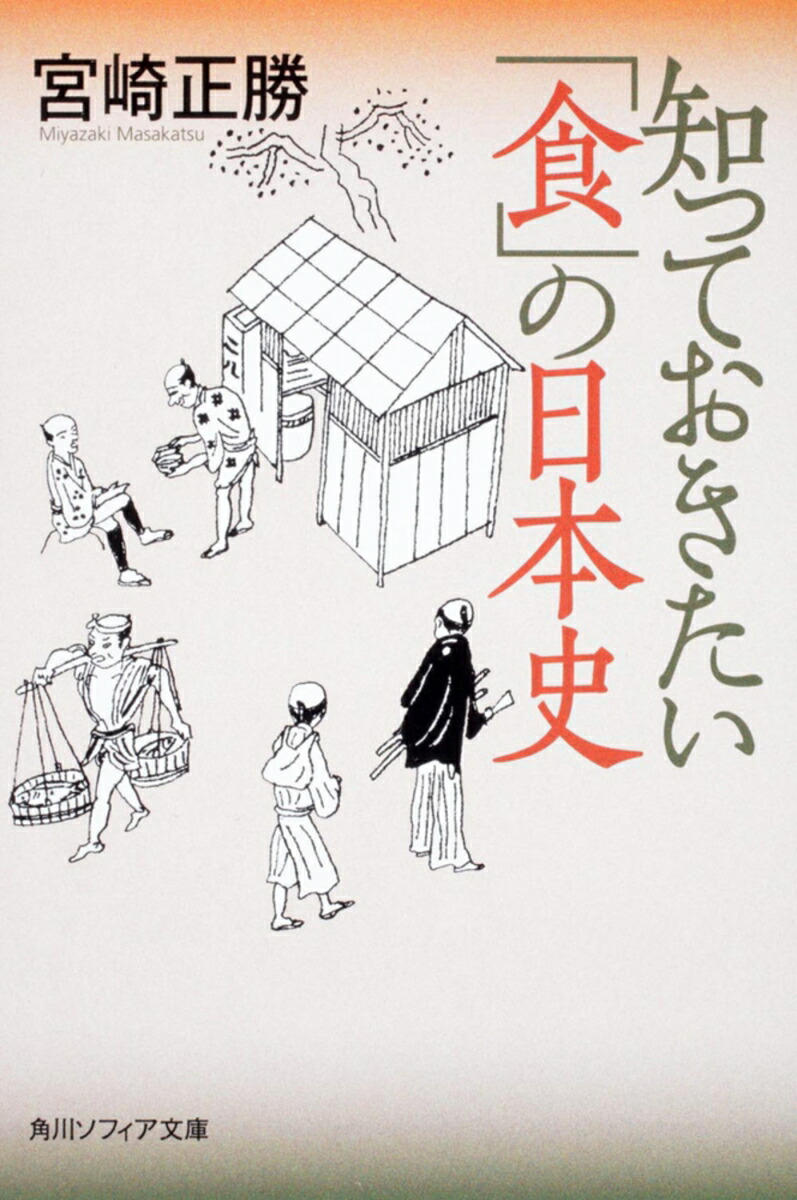 知っておきたい
「食」の日本史
宮崎正勝
Miyazaki Masakatsu
二八
角川ソフィア文庫